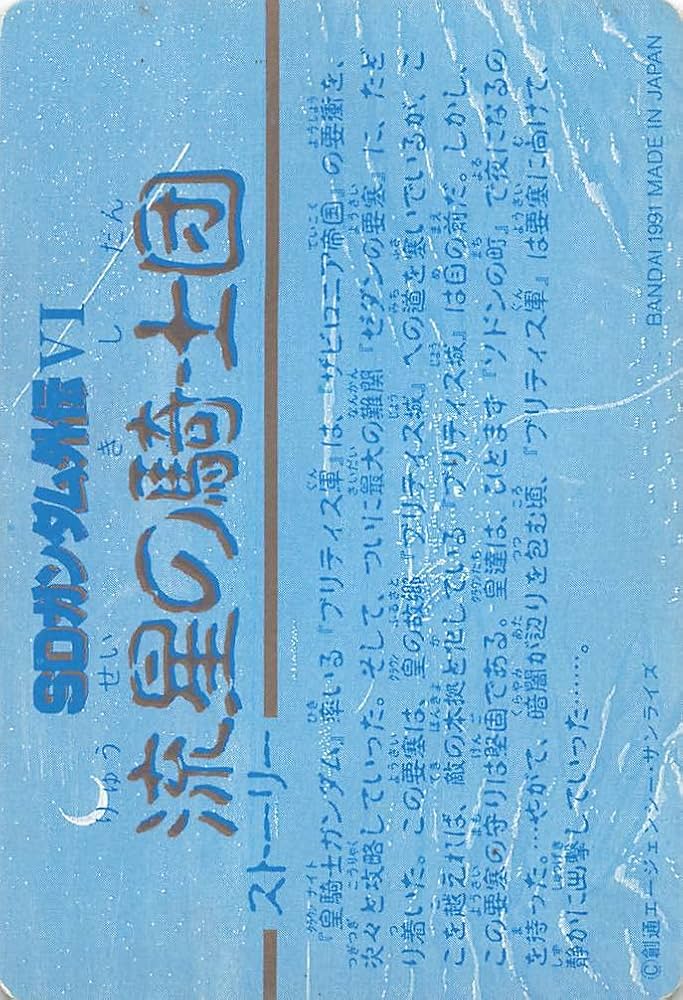 SDガンダム外伝VI
りゅう せい き し だん
流星の騎士団
ストーリー
『皇騎士ガンダム』率いる『ブリティス軍』は、『ザビロニア帝国』の要衝を、
次々と攻略していった。そして、ついに最大の難関『ゼダンの要塞』に、たど
り着いた。この要塞は、皇の故郷、『ブリティス城』への道を塞いでいるが、こ
こを越えれば、敵の本拠と化している『ブリティス城』は目の前だ。しかし、
この要塞の守りは堅固である。皇達は、ひとまず『ソドンの町』で夜になるの
を待った。…やがて、暗闇が辺りを包む頃、『ブリティス軍』は要塞に向けて
静かに出撃していった……。
©創通エージェンシー・サンライズ
BANDAI 1991 MADE IN JAPAN